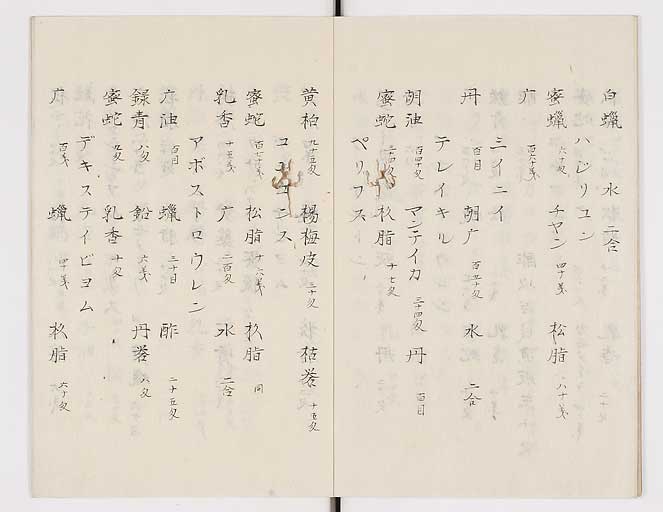 白蠟 水 二合
ハレリコン
蜜蠟 六十戔 チヤン 四十戔 松脂 八十戔
广 百六十戔
ミイニイ
丹 百目 朝广 百五十匁 水 二合
テレイキル
胡油 百四十匁 マンテイカ 三十四匁 丹 百目
蜜蛇 六四匁 松脂 十七匁
ペリフストン
黄柏 九十五匁 楊梅皮 三十匁 枯礬 十五匁
コユコンス
蜜蛇 百七十戔 松脂 十六戔 松脂 同
乳香 十五戔 广 二百匁 水 二合
アボストロウレン
广油 百目 蠟 三十目 酢 二十五匁
録青 八匁 鉛 六戔 丹礬 六匁
蜜蛇 九匁 乳香 十匁
デキステイビヨム
广 百戔 蠟 四十戔 松脂 六十匁